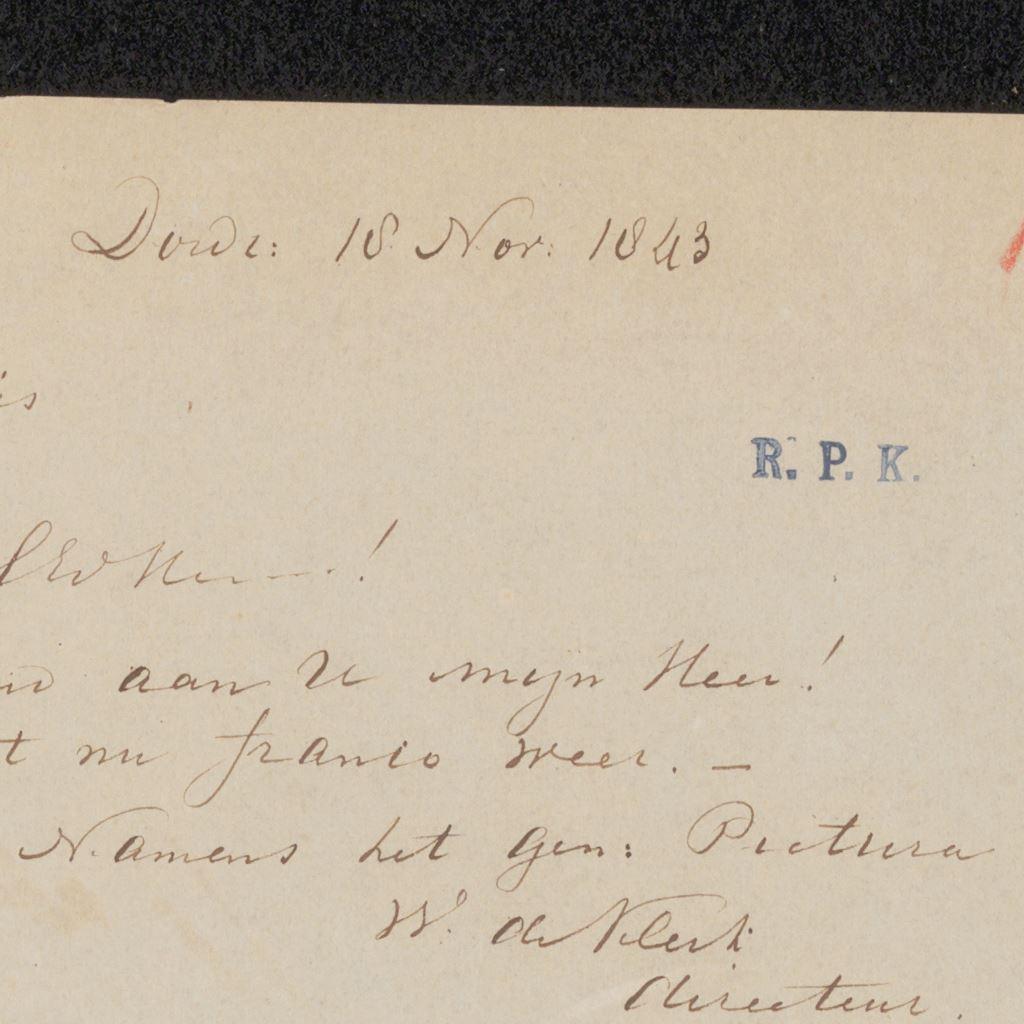 Dordr: 18 Nov. 1843
R. P. K.
aan U mijn Heer!
t nu franco weer. —
Namens het gen: Pictura
W. de Klerk
directeur.